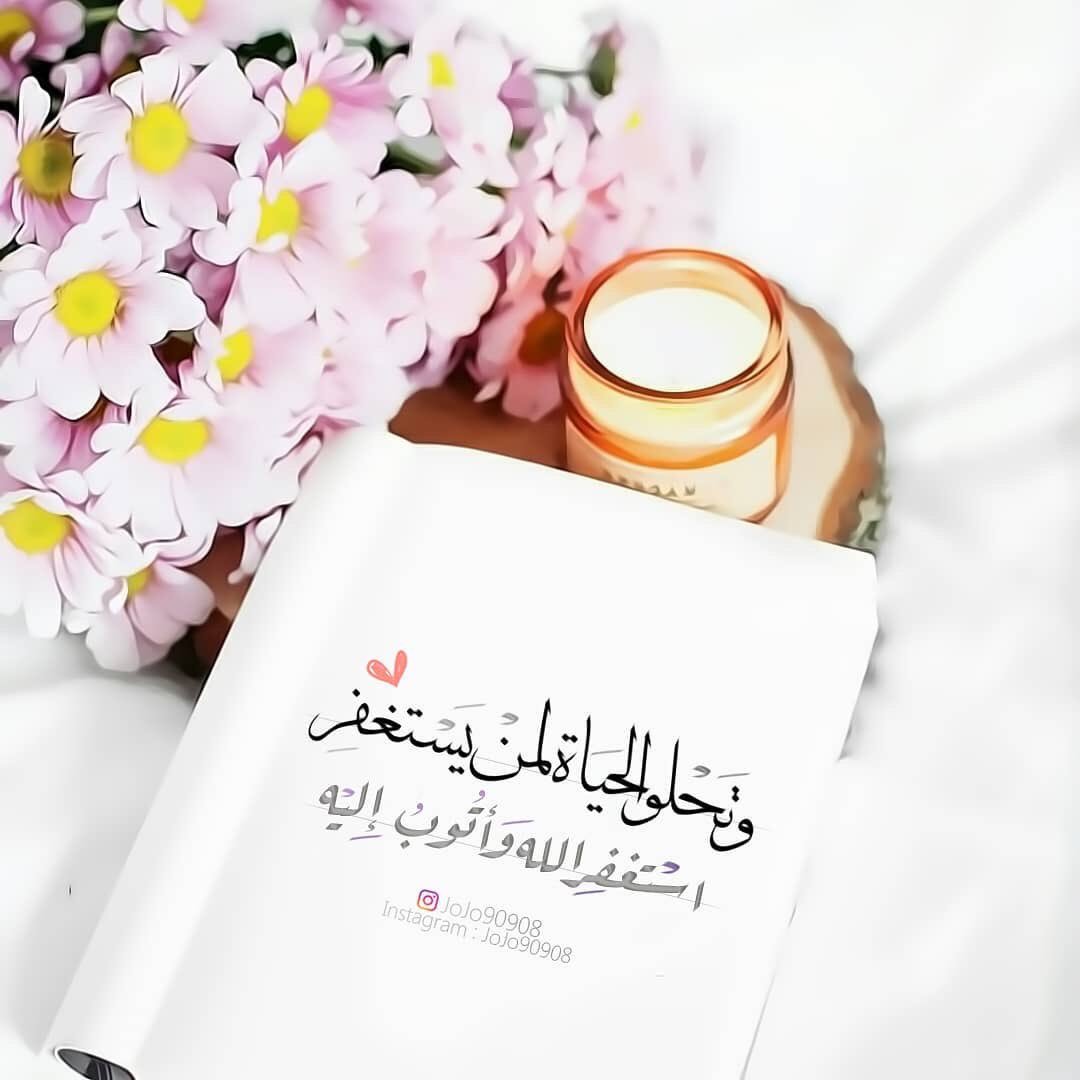 وَتَحْلو الحَيَاة لمنْ يَسْتغفِر
اسْتغفِر الله وَأتُوبُ إليْه
JoJo90908
Instagram : JoJo90908